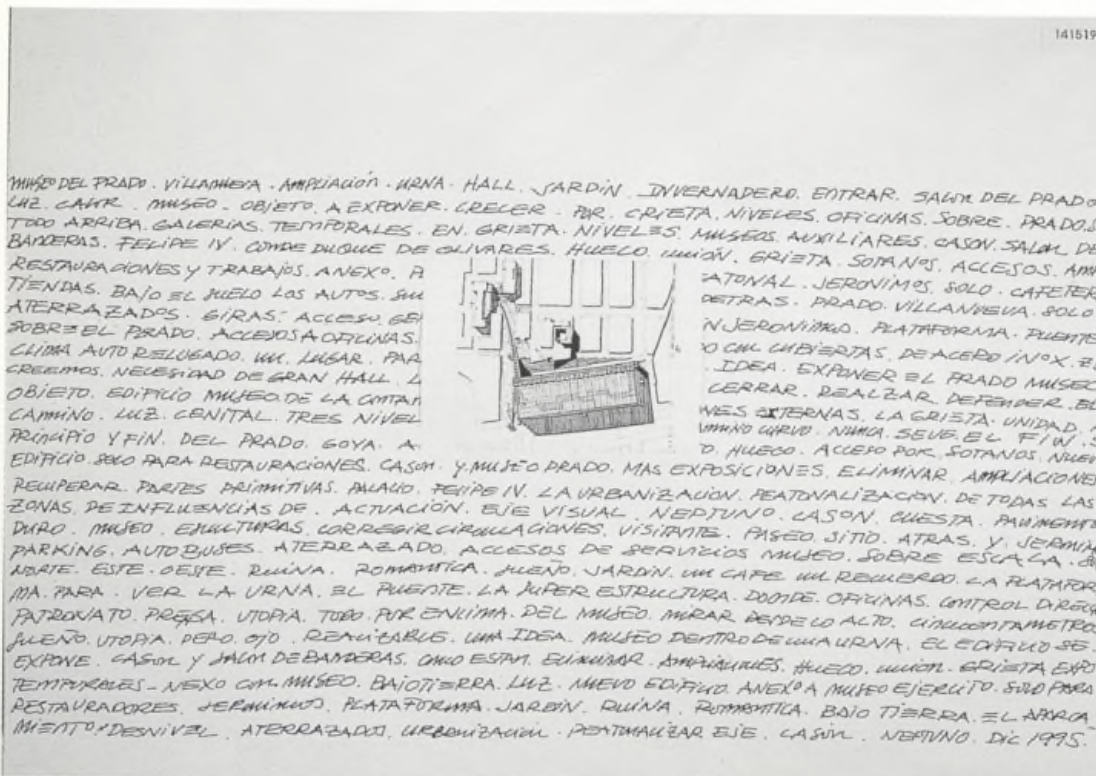 141519
MUSEO DEL PRADO. VILLANUEVA. AMPLIACIÓN. URNA. HALL. JARDÍN. INVERNADERO. ENTRAR. SALON DEL PRADO
LUZ. MUSEO. OBJETO. A EXPONER. CRECER. POR. GRIETA. NIVELES. OFICINAS. SOBRE. PRADOS
TODO ARRIBA. GALERIAS. TEMPORALES. EN. GRIETA. NIVELES. MUSEOS. AUXILIARES. CASON. SALON DE
BANDERAS. FELIPE IV. CONDE DUQUE DE OLIVARES. HUECO. UNIÓN. GRIETA. SOTANOS. ACCESOS. AMP
RESTAURACIONES Y TRABAJOS. ANEXO. P ATONAL. JERONIMOS. SOLO. CAFETER
TIENDAS. BAJO EL SUELO LOS AUTOS. DETRAS. PRADO. VILLANUEVA. SOLO
ATERRAZADOS. GIRAS. ACCESO. GE N JERONIMO. PLATAFORMA. PUENTE
SOBRE EL PRADO. ACCESOS A OFICINAS. O CUBIERTAS. DE ACERO INOX.
CLIMA AUTO RELUGADO. UN. LUGAR. PAR . IDEA. EXPONER EL PRADO MUSEO
CREEMOS. NECESIDAD DE GRAN HALL. CERRAR. REALZAR. DEFENDER. EL
OBJETO. EDIFICIO MUSEO. DE LA CONTAM NES EXTERNAS. LA GRIETA. UNIDAD.
CAMINO. LUZ. CENITAL. TRES NIVEL CURVO. NUNCA. SE VE. EL FIN.
PRINCIPIO Y FIN. DEL PRADO. GOYA. A O. HUECO. ACCESO POR. SOTANOS. NUEV
EDIFICIO SOLO PARA RESTAURACIONES. CASON. Y MUSEO PRADO. MAS EXPOSICIONES. ELIMINAR AMPLIACIONE
RECUPERAR. PARTES PRIMITIVAS. PALACIO. FELIPE IV. LA URBANIZACION. PEATONALIZACION. DE TODAS LAS
ZONAS. DE INFLUENCIAS DE. ACTUACIÓN. EJE VISUAL. NEPTUNO. CASON. CUESTA. PAVIMENTO
DURO. MUSEO ESCULTURAS. CORREGIR CIRCULACIONES. VISITANTE. PASEO. SITIO. ATRAS. Y JERONIM
PARKING. AUTOBUSES. ATERRAZADO. ACCESOS DE SERVICIOS MUSEO. SOBRE ESCALA.
NORTE. ESTE. OESTE. RUINA. ROMANTICA. SUEÑO. JARDIN. UN CAFE UN RECUERDO. LA PLATAFOR
MA. PARA. VER LA URNA. EL PUENTE. LA SUPER ESTRUCTURA. DONDE. OFICINAS. CONTROL DIREC
PATRONATO. PRENSA. UTOPIA. TODO POR ENCIMA. DEL MUSEO. MIRAR DESDE LO ALTO. CINCUENTA METROS
SUEÑO. UTOPIA. PERO. OJO. REALIZABLE. UNA IDEA. MUSEO DENTRO DE UNA URNA. EL EDIFICIO SE.
EXPONE. CASON Y SALON DE BANDERAS. COMO ESTAN. ELIMINAR. AMPLIACIONES. HUECO. UNION. GRIETA EXPO
TEMPORALES - NEXO CON. MUSEO. BAJO TIERRA. LUZ. NUEVO EDIFICIO. ANEXO A MUSEO EJERCITO. SOLO PARA
RESTAURADORES. JERONIMOS. PLATAFORMA. JARDIN. RUINA. ROMANTICA. BAJO TIERRA. EL APARCA
MIENTO. DESNIVEL. ATERRAZADOS. URBANIZACION. PEATONALIZAR EJE. CASON. NEPTUNO. DIC 1995.